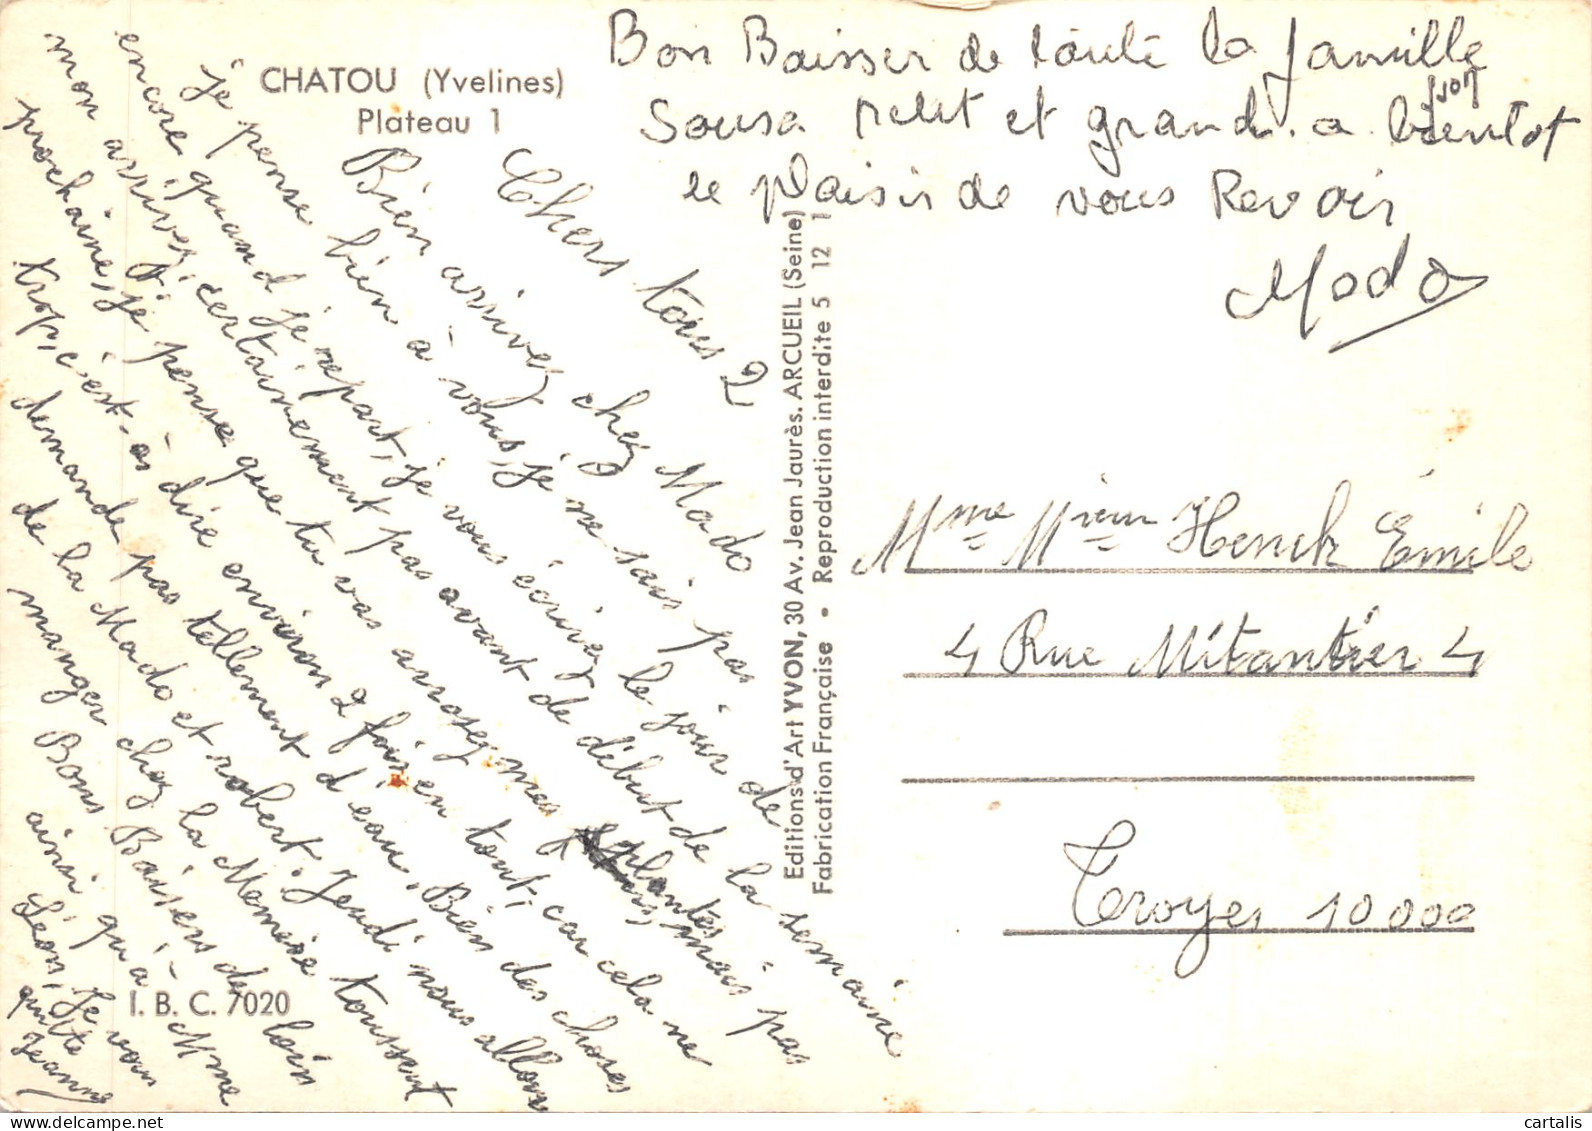 CHATOU (Yvelines)
Plateau 1
Chers tous 2
Bien arrivez chez Mado
je pense bien à vous, je ne sais pas
encore quand je repart, je vous écrivez le jour de
mon arrivez, certainement pas avant de début de la semaine
prochaine, je pense que tu vas arrosez mes plantes, mais pas
trop, c'est-as dire environ 2 fois en tout, car cela ne
demande pas tellement d'eau. Bien des choses
de la Mado et robert. Jeudi nous allons
manger chez la Memère toussent
Bons Baisers de loin
ainsi qu'a Mme
Leon, Je vous
quitte
Jeanne
I. B. C. 7020
Bon Baisser de toute la famille
Sousa petit et grand. a bientot
le plaisir de vous Revoir
Mado
Editions d'Art YVON, 30 Av. Jean Jaurès. ARCUEIL (Seine)
Fabrication Française • Reproduction interdite 5 12 1
Mme Mieur Henck Émile
4 Rue Mitantier 4
Troyes 10000
cartalis